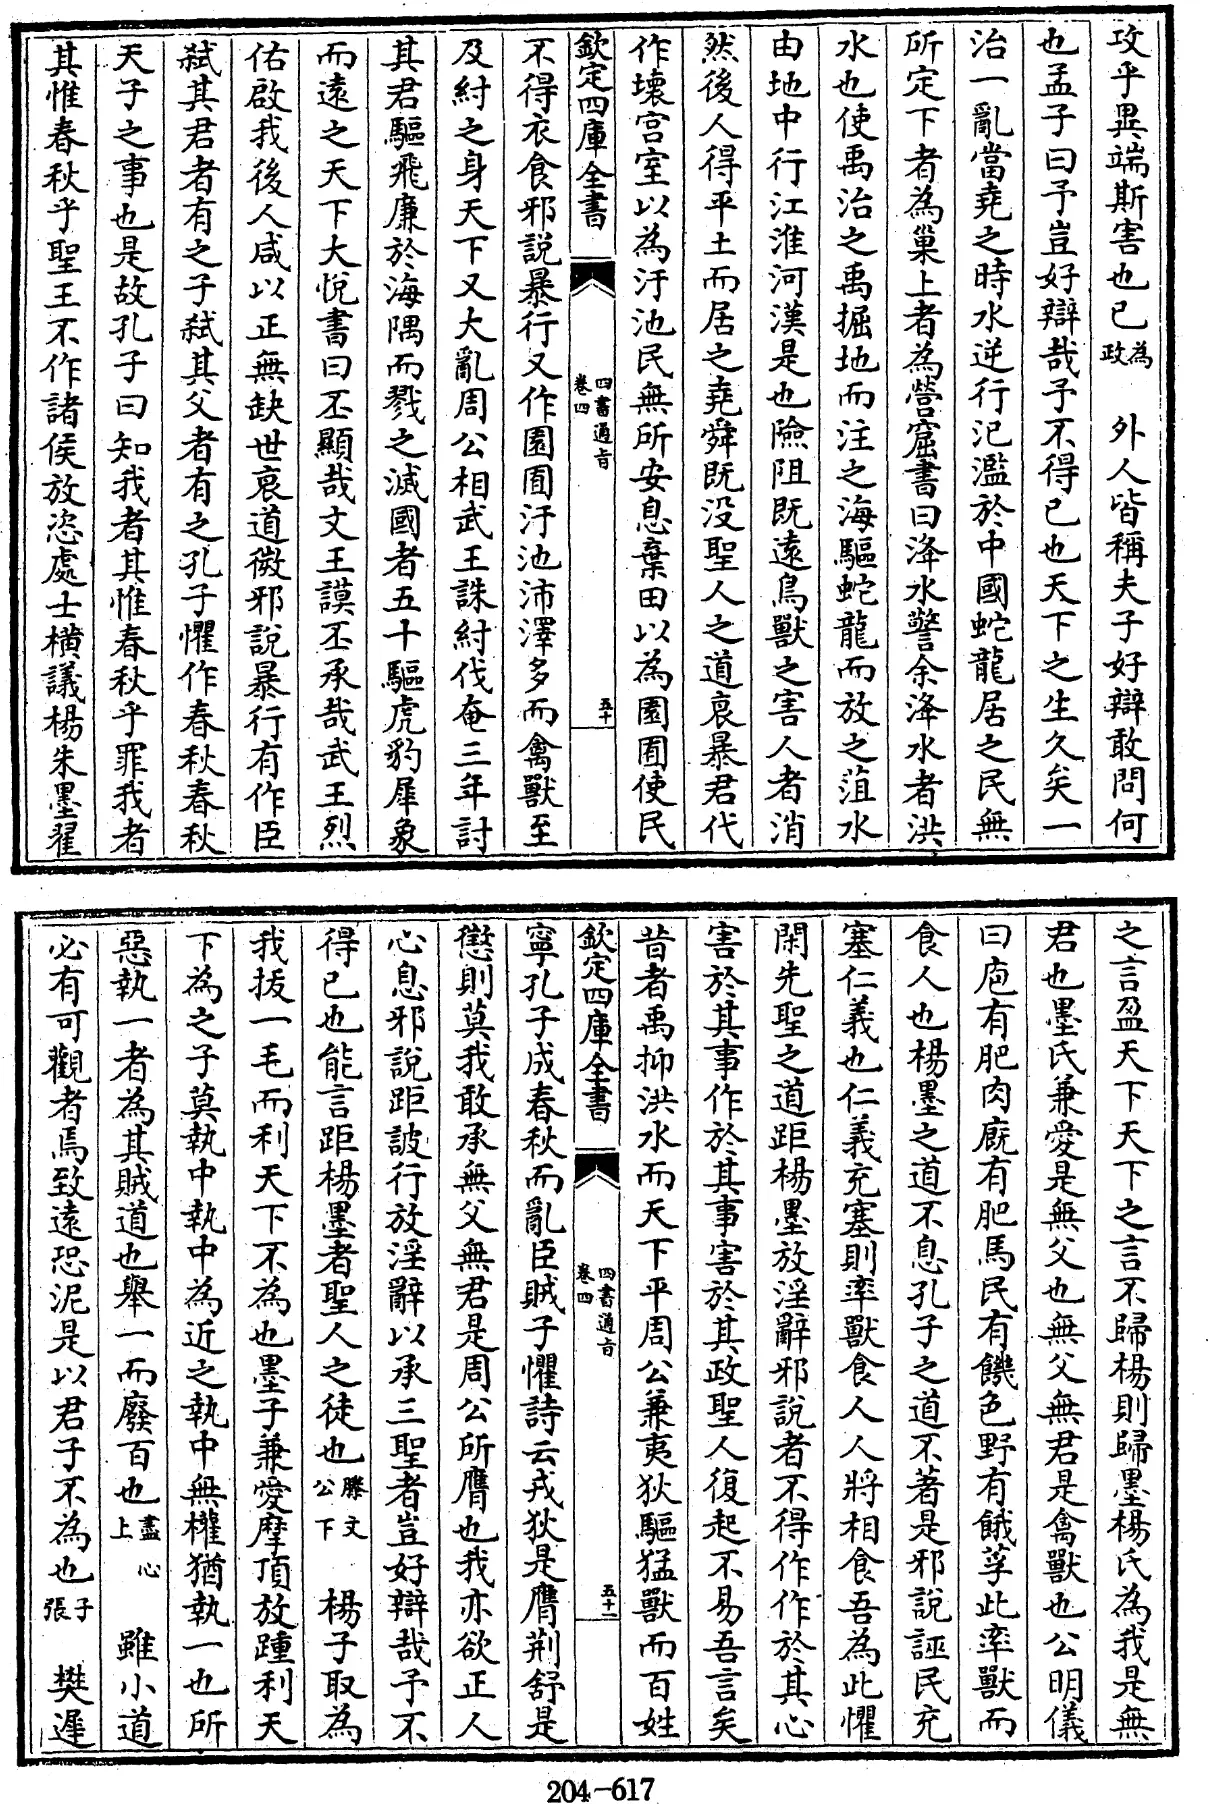 攻乎異端斯害也已為政　外人皆稱夫子好辯敢問何
也孟子曰予豈好辯哉予不得已也天下之生久矣一
治一亂當堯之時水逆行氾濫於中國蛇龍居之民無
所定下者為巢上者為營窟書曰洚水警余洚水者洪
水也使禹治之禹掘地而注之海驅蛇龍而放之菹水
由地中行江淮河漢是也險阻既遠鳥獸之害人者消
然後人得平土而居之堯舜既没聖人之道衰暴君代
作壞宫室以為汙池民無所安息棄田以為園囿使民
欽定四庫全書　四書通旨卷四　五十
不得衣食邪説暴行又作園囿汙池沛澤多而禽獸至
及紂之身天下又大亂周公相武王誅紂伐奄三年討
其君驅飛廉於海隅而戮之滅國者五十驅虎豹犀象
而遠之天下大悅書曰丕顯哉文王謨丕承哉武王烈
佑啟我後人咸以正無缺世衰道微邪説暴行有作臣
弑其君者有之子弑其父者有之孔子懼作春秋春秋
天子之事也是故孔子曰知我者其惟春秋乎罪我者
其惟春秋乎聖王不作諸侯放恣處士橫議楊朱墨翟
之言盈天下天下之言不歸楊則歸墨楊氏為我是無
君也墨氏兼愛是無父也無父無君是禽獸也公明儀
曰庖有肥肉廐有肥馬民有饑色野有餓莩此率獸而
食人也楊墨之道不息孔子之道不著是邪説誣民充
塞仁義也仁義充塞則率獸食人人將相食吾為此懼
閑先聖之道距楊墨放淫辭邪説者不得作作於其心
害於其事作於其事害於其政聖人復起不易吾言矣
昔者禹抑洪水而天下平周公兼夷狄驅猛獸而百姓
欽定四庫全書　四書通旨卷四　五十一
寧孔子成春秋而亂臣賊子懼詩云戎狄是膺荆舒是
懲則莫我敢承無父無君是周公所膺也我亦欲正人
心息邪説距詖行放淫辭以承三聖者豈好辯哉予不
得已也能言距楊墨者聖人之徒也滕文公下　楊子取為
我拔一毛而利天下不為也墨子兼愛摩頂放踵利天
下為之子莫執中執中為近之執中無權猶執一也所
惡執一者為其賊道也舉一而廢百也盡心上　雖小道
必有可觀者焉致遠恐泥是以君子不為也子張　樊遲
204-617